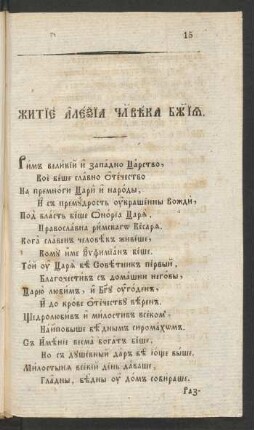 15
ЖИТІЕ АЛЕѮІА ЧЛ҃ВѢКА БЖ҃ІѦ.
Римъ великій и западно Царство,
Воё бѣше славно Ѻтечество
На премноги Цари и народы,
И съ премудрость оукрашенны Вожди,
Подъ власть бѣше Ѻнорїа Царѧ,
Православна римскагѡ Кесарѧ.
Когà славенъ человѣкъ живеше,
Кому име Еуѳиміанъ бѣше.
Той оу Царѧ бѣ Совѣтникъ первый,
Благочестивъ съ домашни неговы,
Царю любимъ, и Бг҃у оугоденъ,
И до крове Ѻтечеству вѣренъ.
Щедролюбивъ и милостивъ всѣкому,
Найповыше бѣднымъ сиромахѡмъ.
Съ Имѣніе весма богатъ бѣше,
Но съ душевный даръ бѣ іоще выше.
Милостынѧ всѣкій день даваше,
Гладны, бѣдны оу домъ собираше.
Раз-